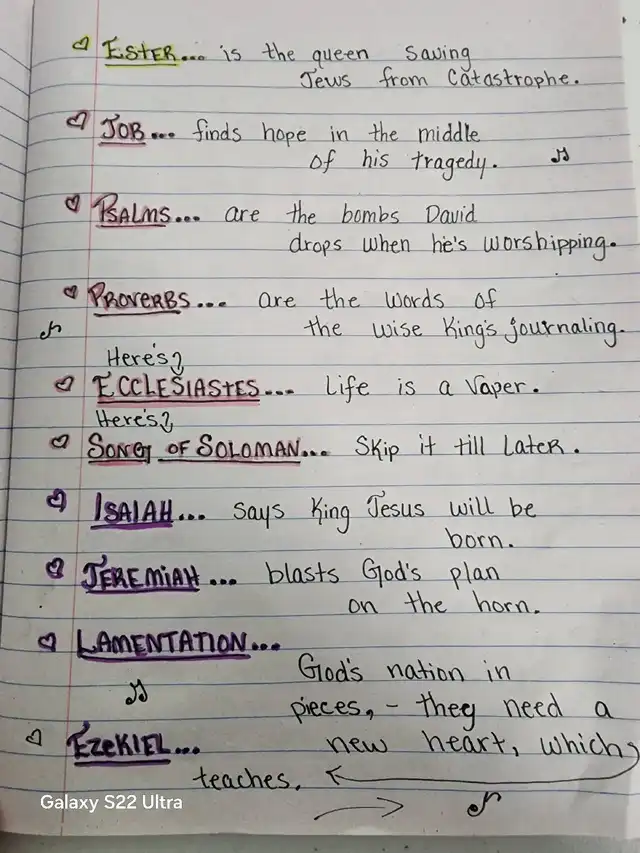 ESTER... is the queen saving
Jews from Catastrophe.
JOB... finds hope in the middle
of his tragedy.
PSALMS... are the bombs David
drops when he's worshipping.
PROVERBS... are the words of
the wise King's journaling.
Here's
ECCLESIASTES... Life is a Vaper.
Here's
SONG OF SOLOMAN... Skip it till Later.
ISAIAH... says King Jesus will be
born.
JEREMIAH... blasts God's plan
on the horn.
LAMENTATION...
God's nation in
pieces, - they need a
EZEKIEL... new heart, which
teaches.
Galaxy S22 Ultra